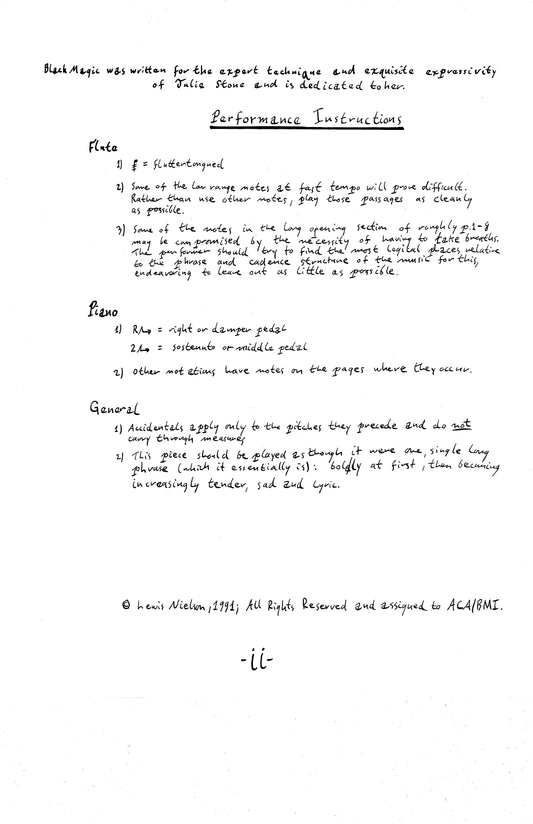 Black Magic was written for the expert technique and exquisite expressivity
of Julie Stone and is dedicated to her.
Performance Instructions
Flute
1) = fluttertongued
2) Some of the low range notes at fast tempo will prove difficult.
Rather than use other notes, play those passages as cleanly
as possible.
3) Some of the notes in the long opening section of roughly p.1-8
may be compromised by the necessity of having to take breaths.
The performer should try to find the most logical places relative
to the phrase and cadence structure of the music for this,
endeavoring to leave out as little as possible.
Piano
1) = right or damper pedal
= sostenuto or middle pedal
2) Other notations have notes on the pages where they occur.
General
1) Accidentals apply only to the pitches they precede and do not
carry through measures
2) This piece should be played as though it were one, single long
phrase (which it essentially is): boldly at first, then becoming
increasingly tender, sad and lyric.
© Lewis Nielson, 1991; All Rights Reserved and assigned to ACA/BMI.
-ii-